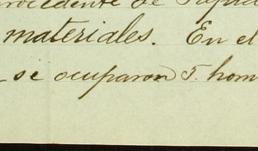 procedente de
materiales. En el
se ocuparon 5. hom